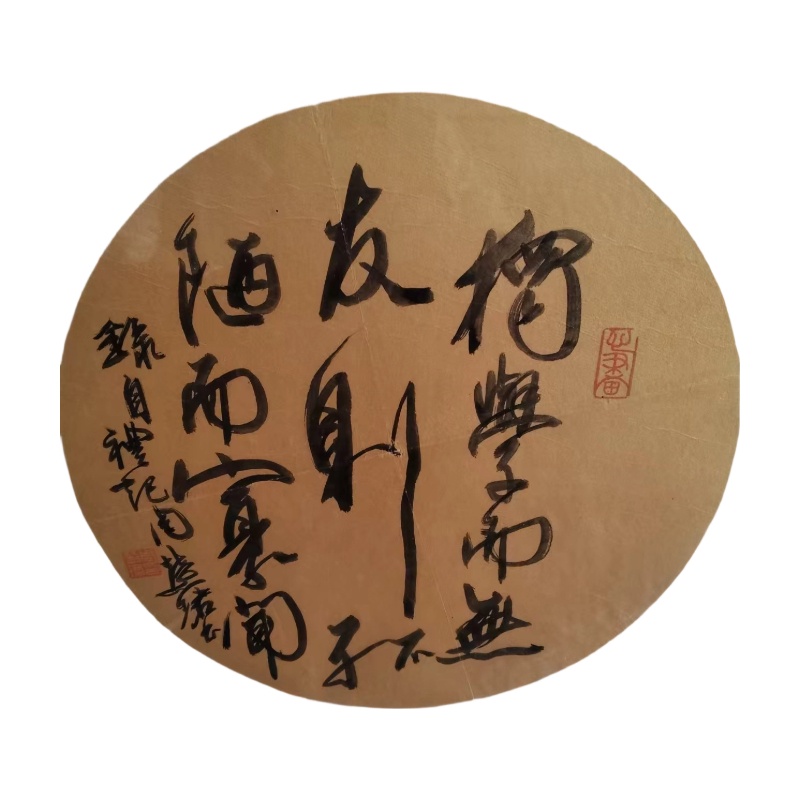 獨學而無
友則孤
陋而寡聞
錄自禮記